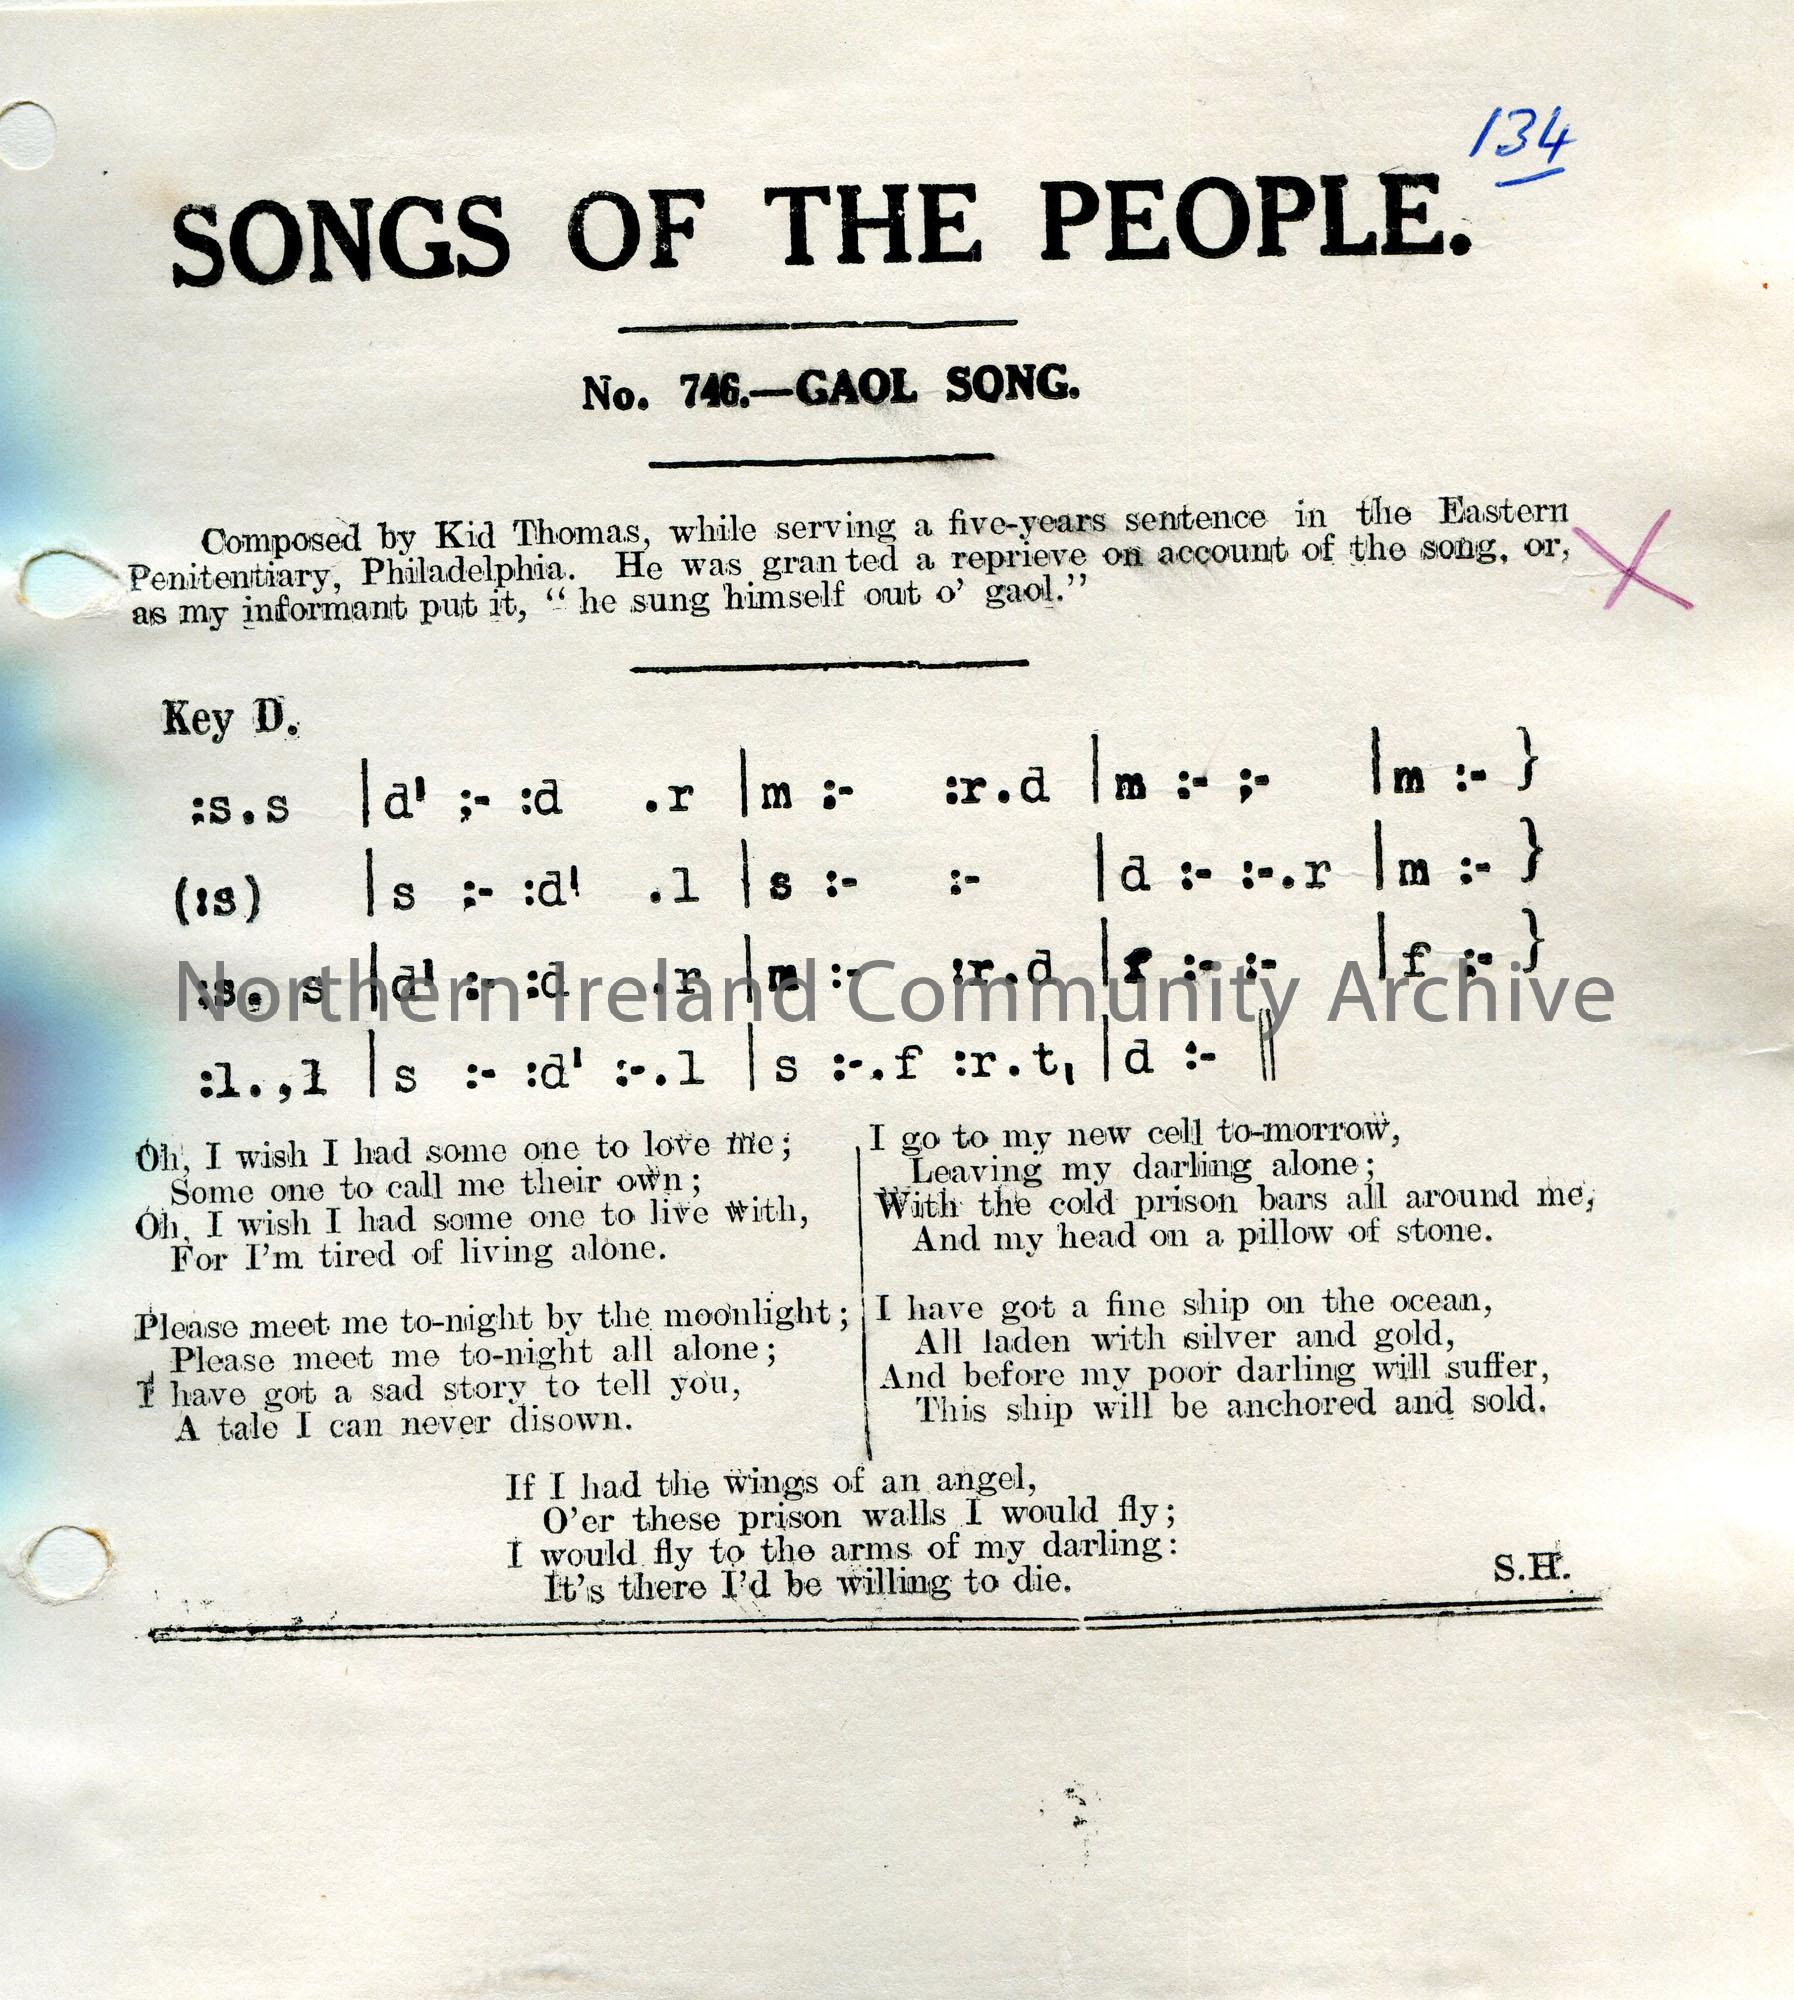 134
SONGS OF THE PEOPLE.
No. 746.—GAOL SONG.
Composed by Kid Thomas, while serving a five-years sentence in the Eastern
Penitentiary, Philadelphia. He was granted a reprieve on account of the song, or,
as my informant put it, “ he sung himself out o’ gaol.”
Key D.
:s.s |d' ;- :d .r |m :- :r.d |m :- ;- |m :- }
(:s) |s :- :d' .l |s :- :- |d :- :-.r |m :- }
:s. s |d' :- :d .r |m :- :r.d |f :- :- |f :- }
Northern Ireland Community Archive
:l.,l |s :- :d' :-.l |s :-.f :r.t, |d :- ||
Oh, I wish I had some one to love me;
Some one to call me their own;
Oh, I wish I had some one to live with,
For I'm tired of living alone.
Please meet me to-night by the moonlight;
Please meet me to-night all alone;
I have got a sad story to tell you,
A tale I can never disown.
I go to my new cell to-morrow,
Leaving my darling alone;
With the cold prison bars all around me,
And my head on a pillow of stone.
I have got a fine ship on the ocean,
All laden with silver and gold,
And before my poor darling will suffer,
This ship will be anchored and sold.
If I had the wings of an angel,
O'er these prison walls I would fly;
I would fly to the arms of my darling:
It's there I'd be willing to die.
S.H.